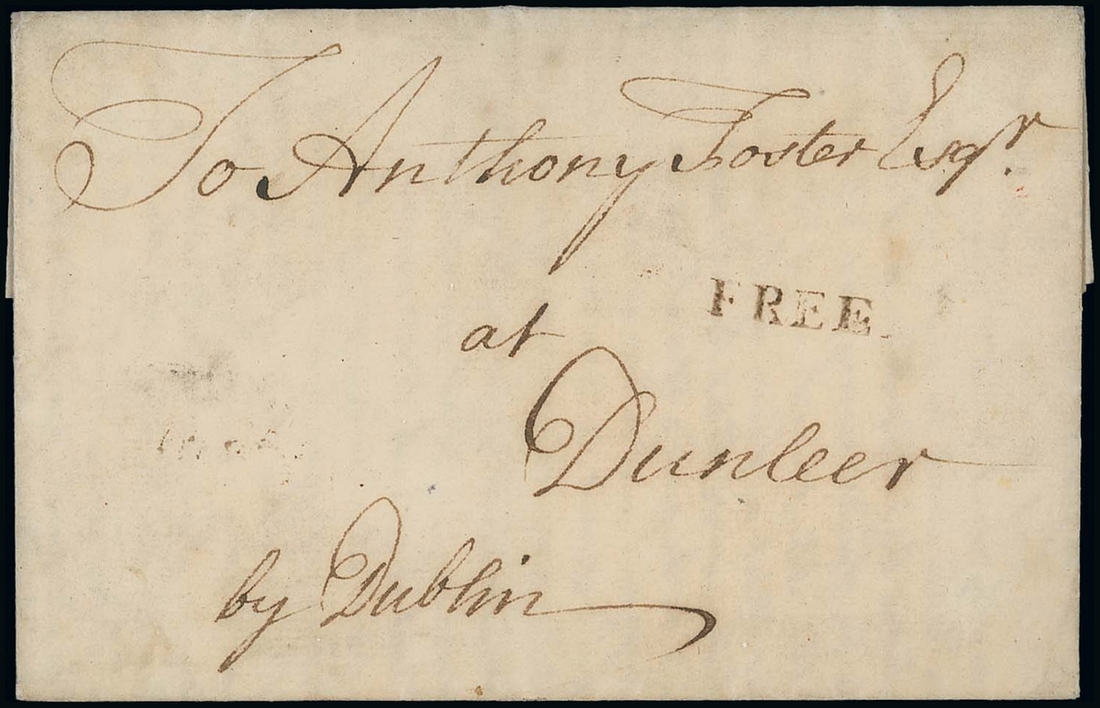 To Anthony Foster Esqr.
FREE.
at
Dunleer
by Dublin